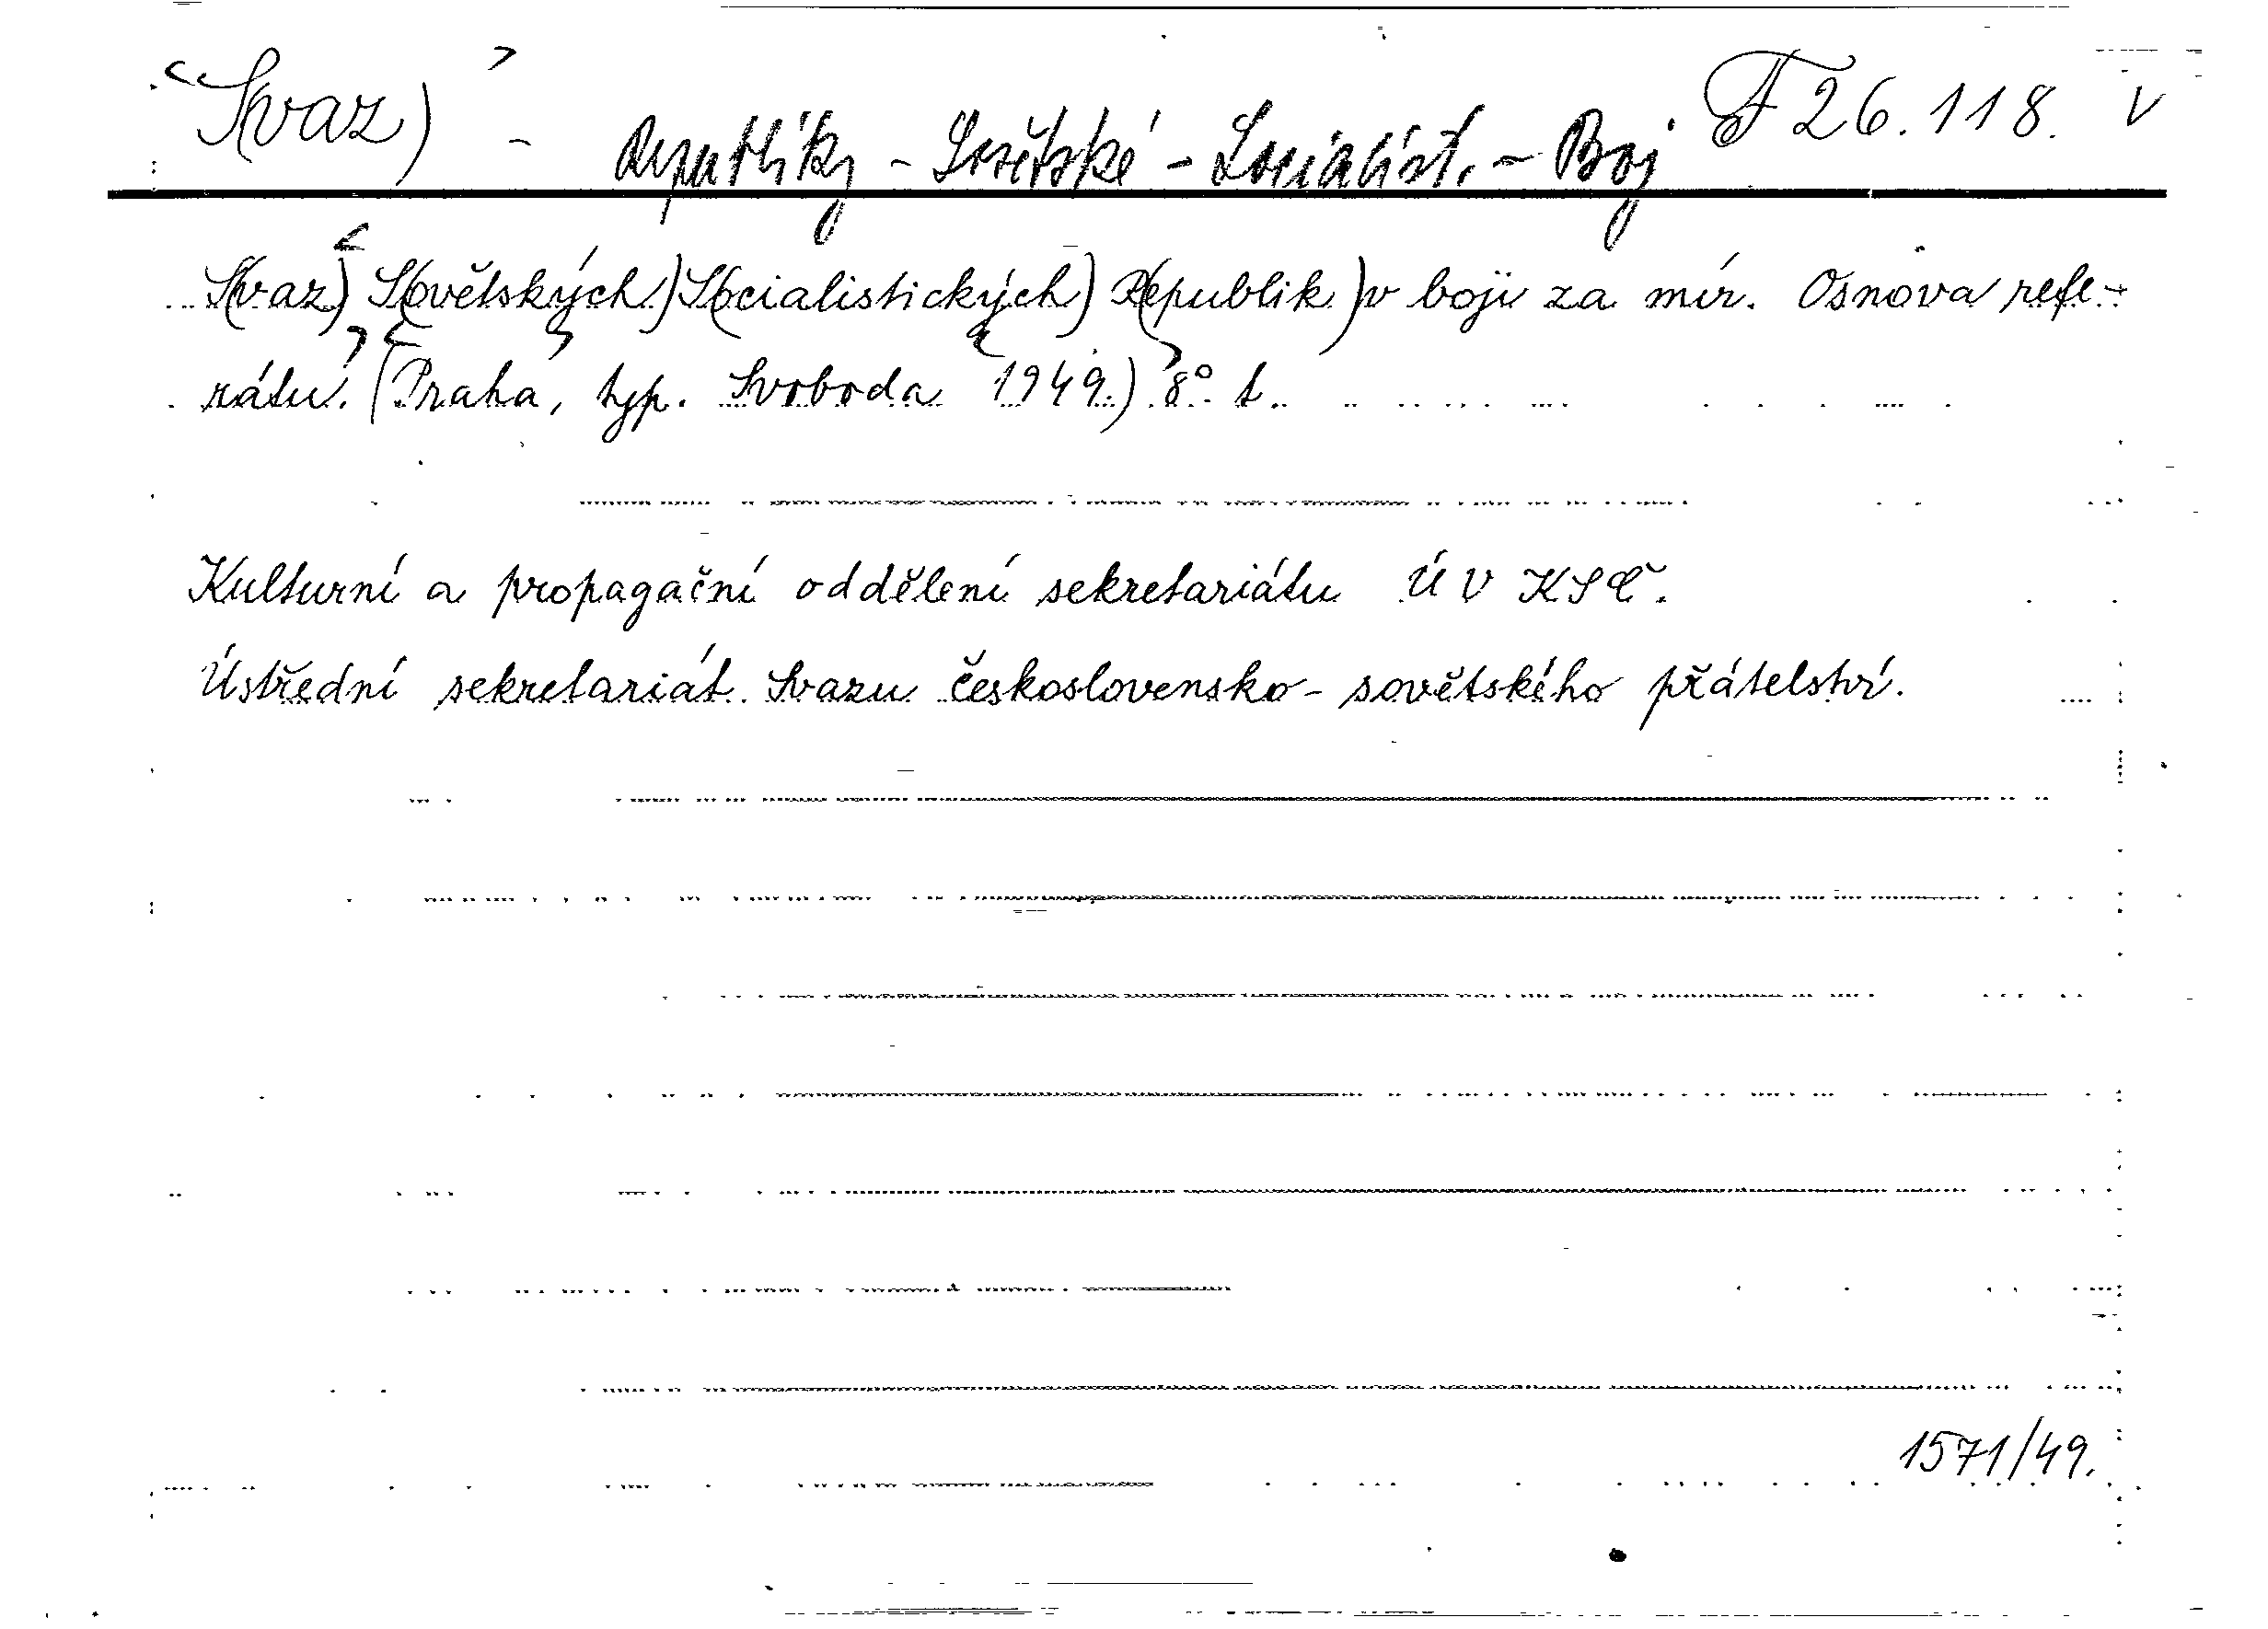 <S(vaz)> - Republiky - Sovětské - Socialist. - Boj F 26.118. V
S(vaz) S(ovětských) S(ocialistických) R(epublik) v boji za mír. Osnova refe-
rátu. (Praha, typ. Svoboda 1949.) 8° t.
Kulturní a propagační oddělení sekretariátu ÚV KSČ.
Ústřední sekretariát Svazu československo-sovětského přátelství.
1571/49.